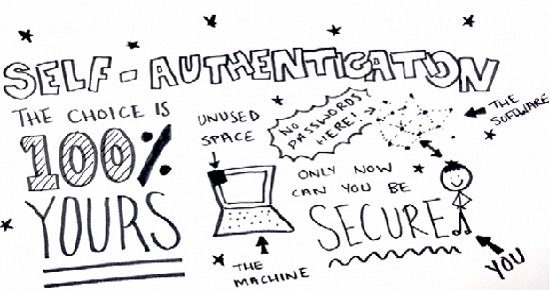 SELF-AUTHENTICATION
THE CHOICE IS
100%
YOURS
UNUSED
SPACE
NO
PASSWORDS
HERE!
THE
SOFTWARE
ONLY NOW
CAN YOU BE
SECURE
THE
MACHINE
YOU